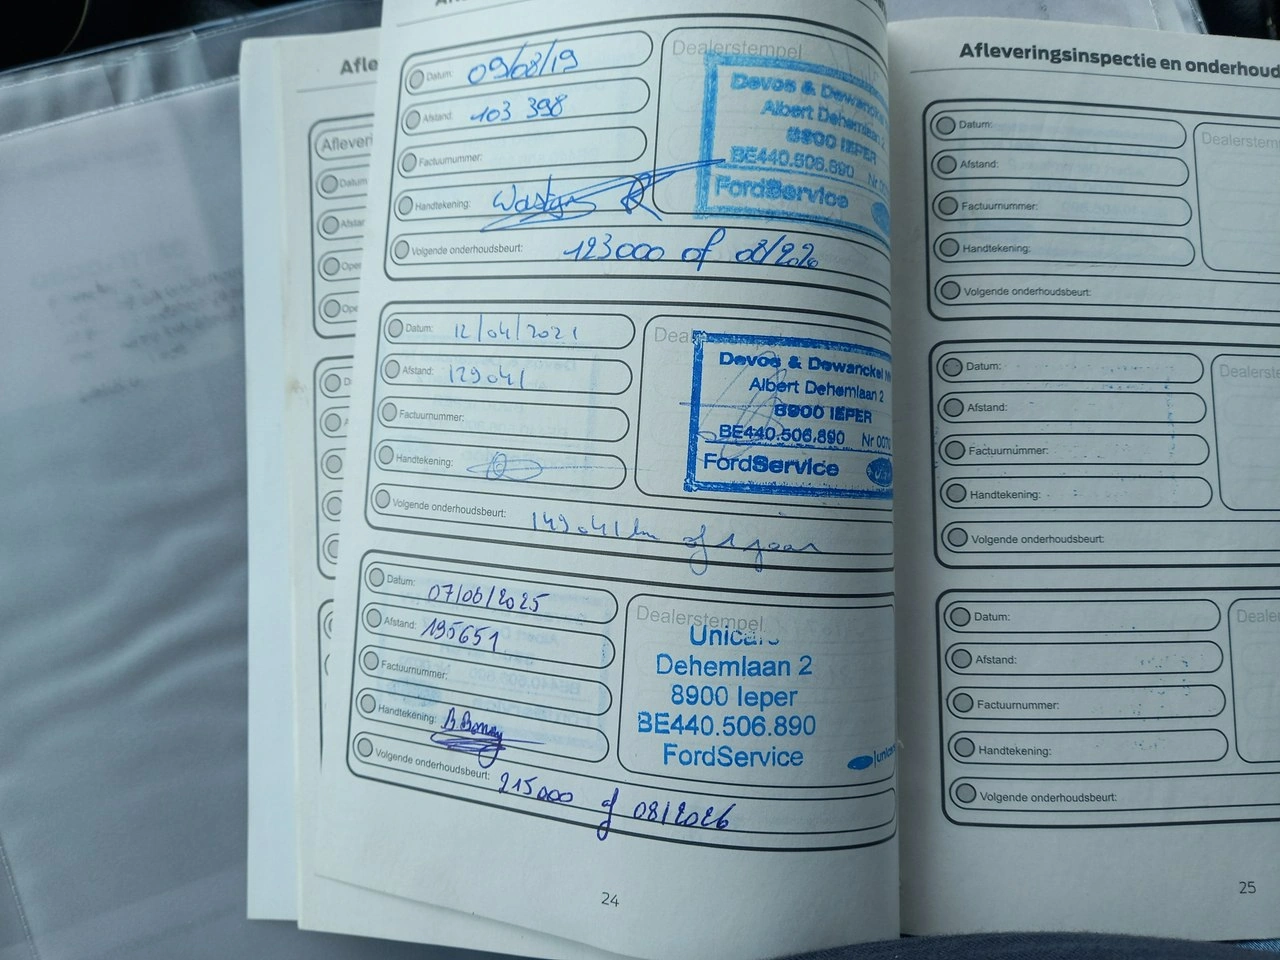 Afle
Afleveri
Datum
Afstar
Datum: 09/08/19
Afstand: 103 398
Factuurnummer:
Handtekening:
Volgende onderhoudsbeurt: 123000 of 08/2020
Dealerstempel
Devos & Dewanckel
Albert Dehemlaan 2
8900 IEPER
BE440.506.890 Nr
FordService
Datum: 12/04/2021
Afstand: 129041
Factuurnummer:
Handtekening:
Volgende onderhoudsbeurt: 149041 km of 1 jaar
Devos & Dewanckel
Albert Dehemlaan 2
8900 IEPER
BE440.506.890 Nr 007
FordService
Datum: 07/08/2025
Afstand: 195651
Factuurnummer:
Handtekening:
Volgende onderhoudsbeurt: 215000 of 08/2026
Dealerstempel
Dehemlaan 2
8900 Ieper
BE440.506.890
FordService
24
Afleveringsinspectie en onderhoud
Datum:
Afstand:
Factuurnummer:
Handtekening:
Volgende onderhoudsbeurt:
Dealerstem
Datum:
Afstand:
Factuurnummer:
Handtekening:
Volgende onderhoudsbeurt:
Dealerste
Datum:
Afstand:
Factuurnummer:
Handtekening:
Volgende onderhoudsbeurt:
Deale
25